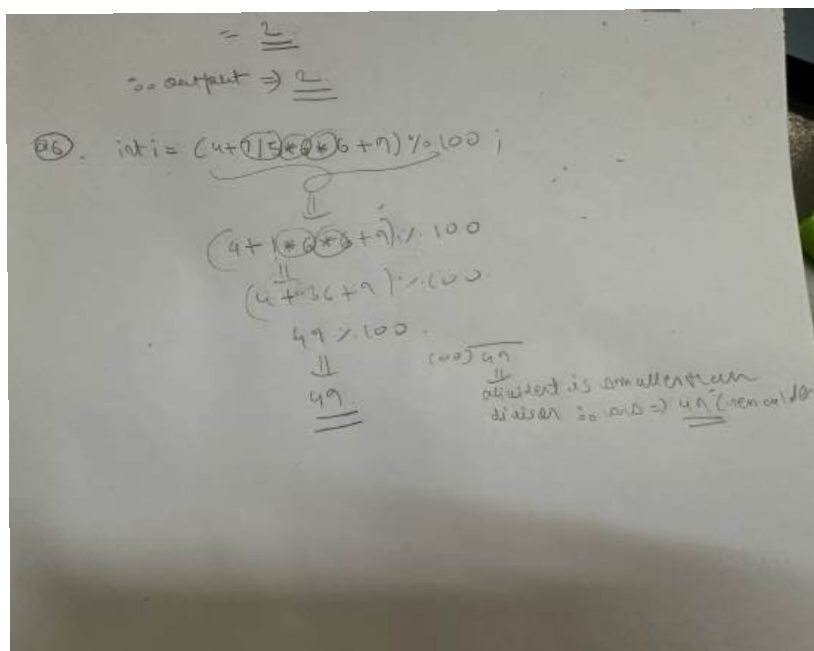 = 2
∴ output ⇒ 2
Q6. int i = (4+7/5*6*6+9)%100;
(4+1*6*6+9)%100
(4+36+9)%100
49%100.
100)49
49
dividend is smaller than
divisor ∴ ans ⇒ 49 (remainder